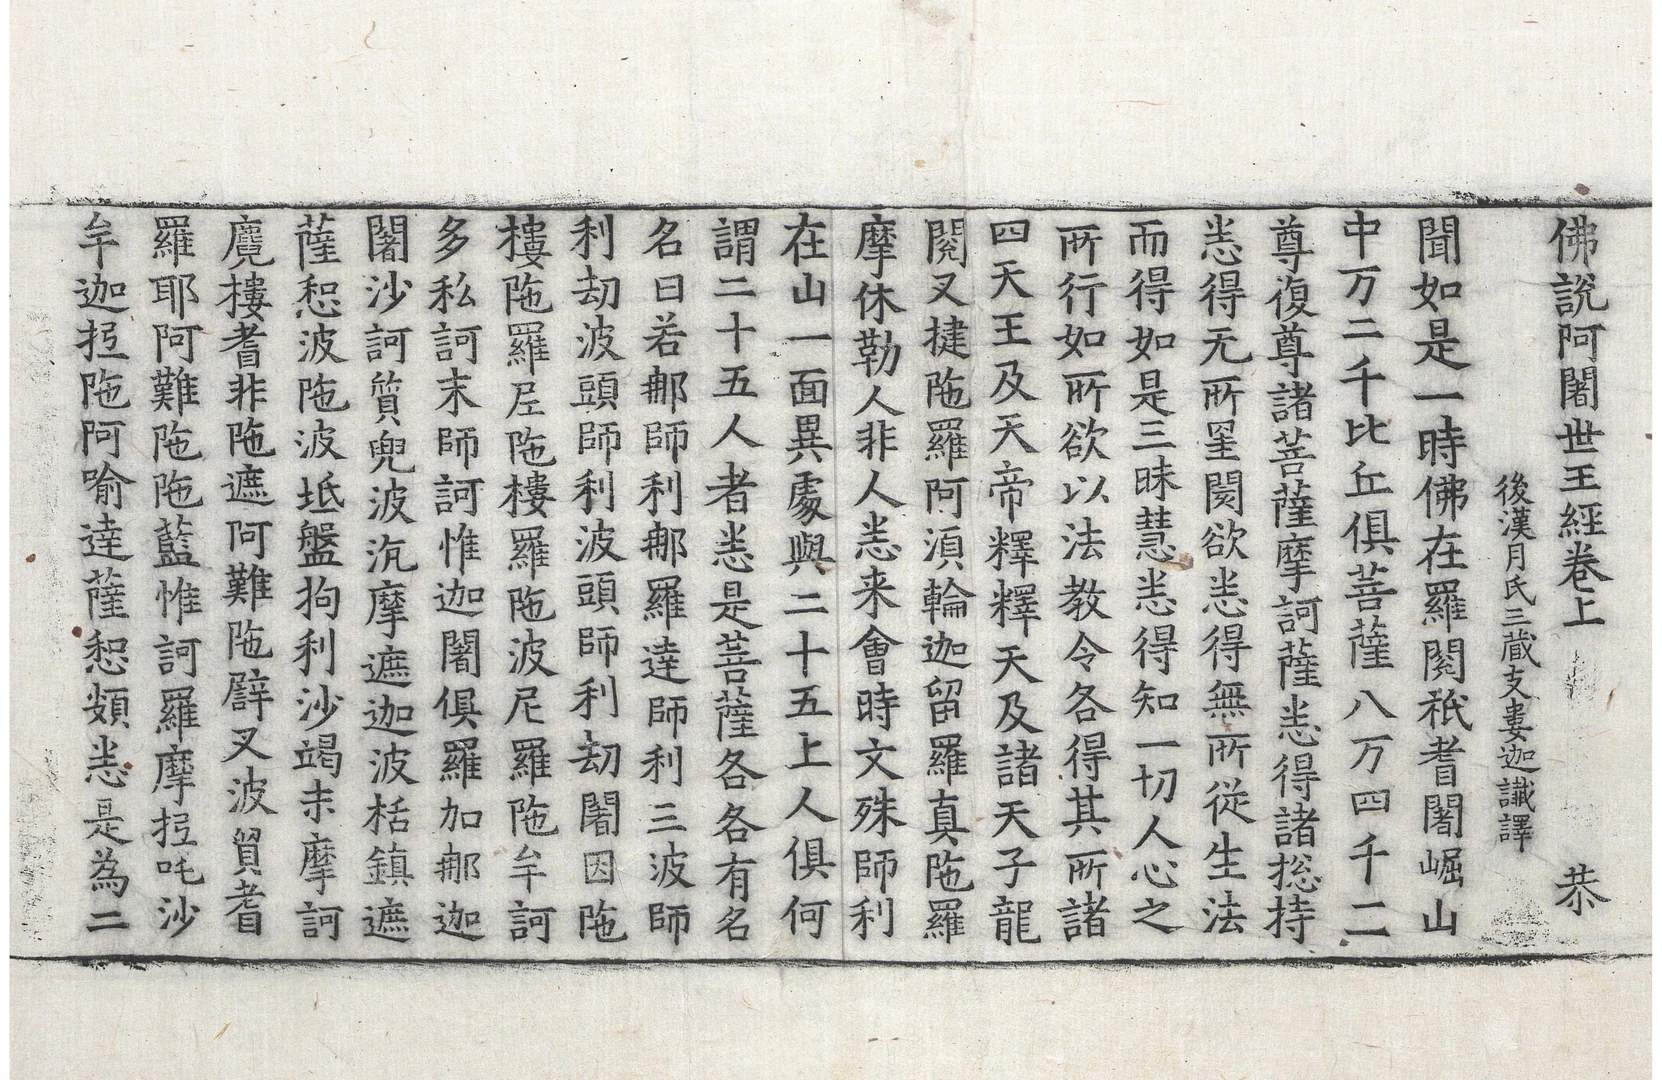 佛說阿闍世王經卷上 恭
後漢月氏三藏支婁迦讖譯
聞如是一時佛在羅閱祇耆闍崛山
中万二千比丘俱菩薩八万四千二
尊復尊諸菩薩摩訶薩悉得諸揔持
悉得无所罣閡欲悉得無所從生法
而得如是三昧慧悉得知一切人心之
所行如所欲以法教令各得其所諸
四天王及天帝釋釋天及諸天子龍
閱叉揵陁羅阿湏輪迦留羅真陁羅
摩休勒人非人悉来會時文殊師利
在山一面異處與二十五上人俱何
謂二十五人者悉是菩薩各各有名
名曰若那師利那羅達師利三波師
利劫波頭師利波頭師利劫闍因陁
樓陁羅尼陁樓羅陁波尼羅陁牟訶
多私訶末師訶惟迦闍俱羅加那迦
闍沙訶質兜波沉摩遮迦波栝鎮遮
薩惒波陁波坻盤拘利沙竭末摩訶
麾樓耆非陁遮阿難陁譬叉波質耆
羅耶阿難陁陁藍惟訶羅摩抳吒沙
牟迦抳陁阿喻達薩惒頞悉是為二